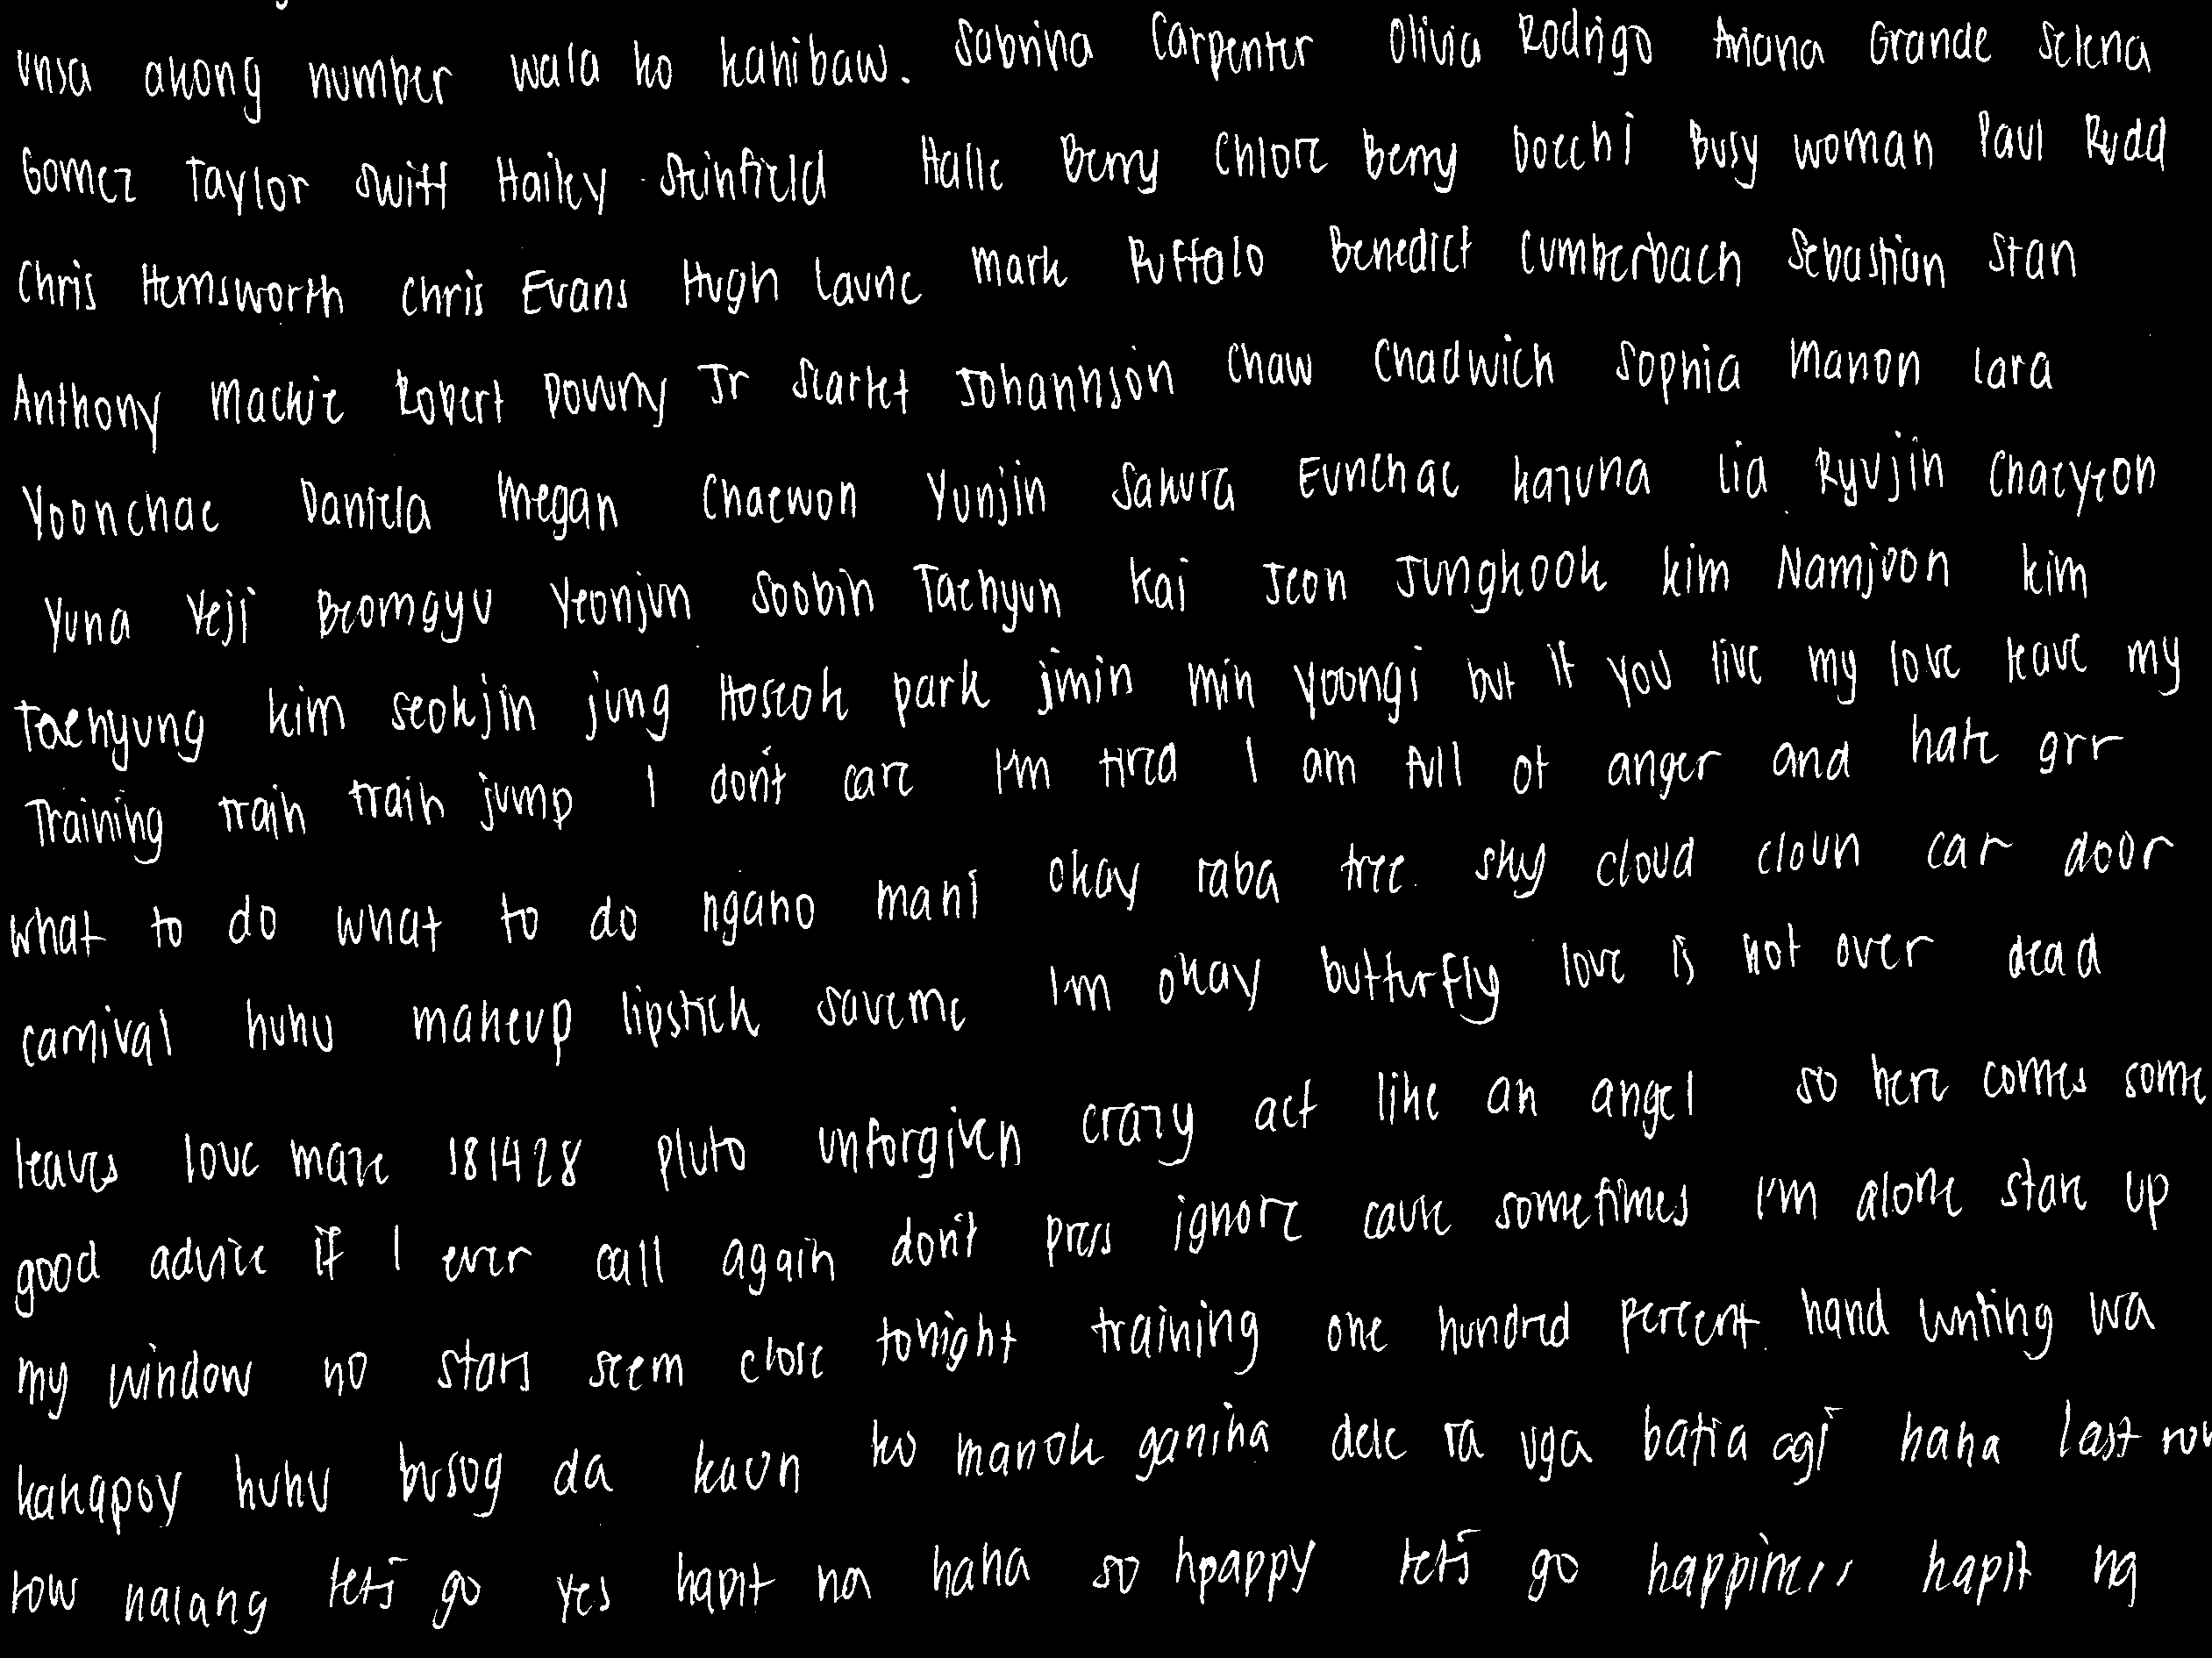 unsa akong number wala ko kahibaw. Sabrina Carpenter Olivia Rodrigo Ariana Grande Selena
Gomez Taylor Swift Hailey Steinfield Halle Berry Chloe Berry Doechi Busy woman Paul Rudd
Chris Hemsworth Chris Evans Hugh Laurie Mark Ruffalo Benedict Cumberbach Sebastian Stan
Anthony Mackie Robert Downy Jr Scarlet Johannson Chaw Chadwick Sophia Manon Lara
Yoonchae Daniela Megan Chaewon Yunjin Sakura Eunchae Kazuha Lia Ryujin Chaeyeon
Yuna Yeji Beomgyu Yeonjun Soobin Taehyun Kai Jeon Jungkook kim Namjoon kim
Taehyung kim seokjin jung Hoseok park jimin min yoongi but if you live my love leave my
Training train train jump I don't care I'm tired I am full of anger and hate grr
what to do what to do ngano mani okay raba tree sky cloud cloun car door
carnival huhu makeup lipstick save me I'm okay butturfly love is not over dead
leaves love maze 181428 pluto unforgiven crazy act like an angel so here comes some
good advice if I ever call again don't press ignore cause sometimes I'm alone stare up
my window no stars seem close tonight training one hundred percent hand writing wa
kakapoy huhu busog da kaon ko manok ganiha dele ra uga batia agi haha last row
row nalang let's go yes hapit na haha so hpappy let's go happiness hapit na